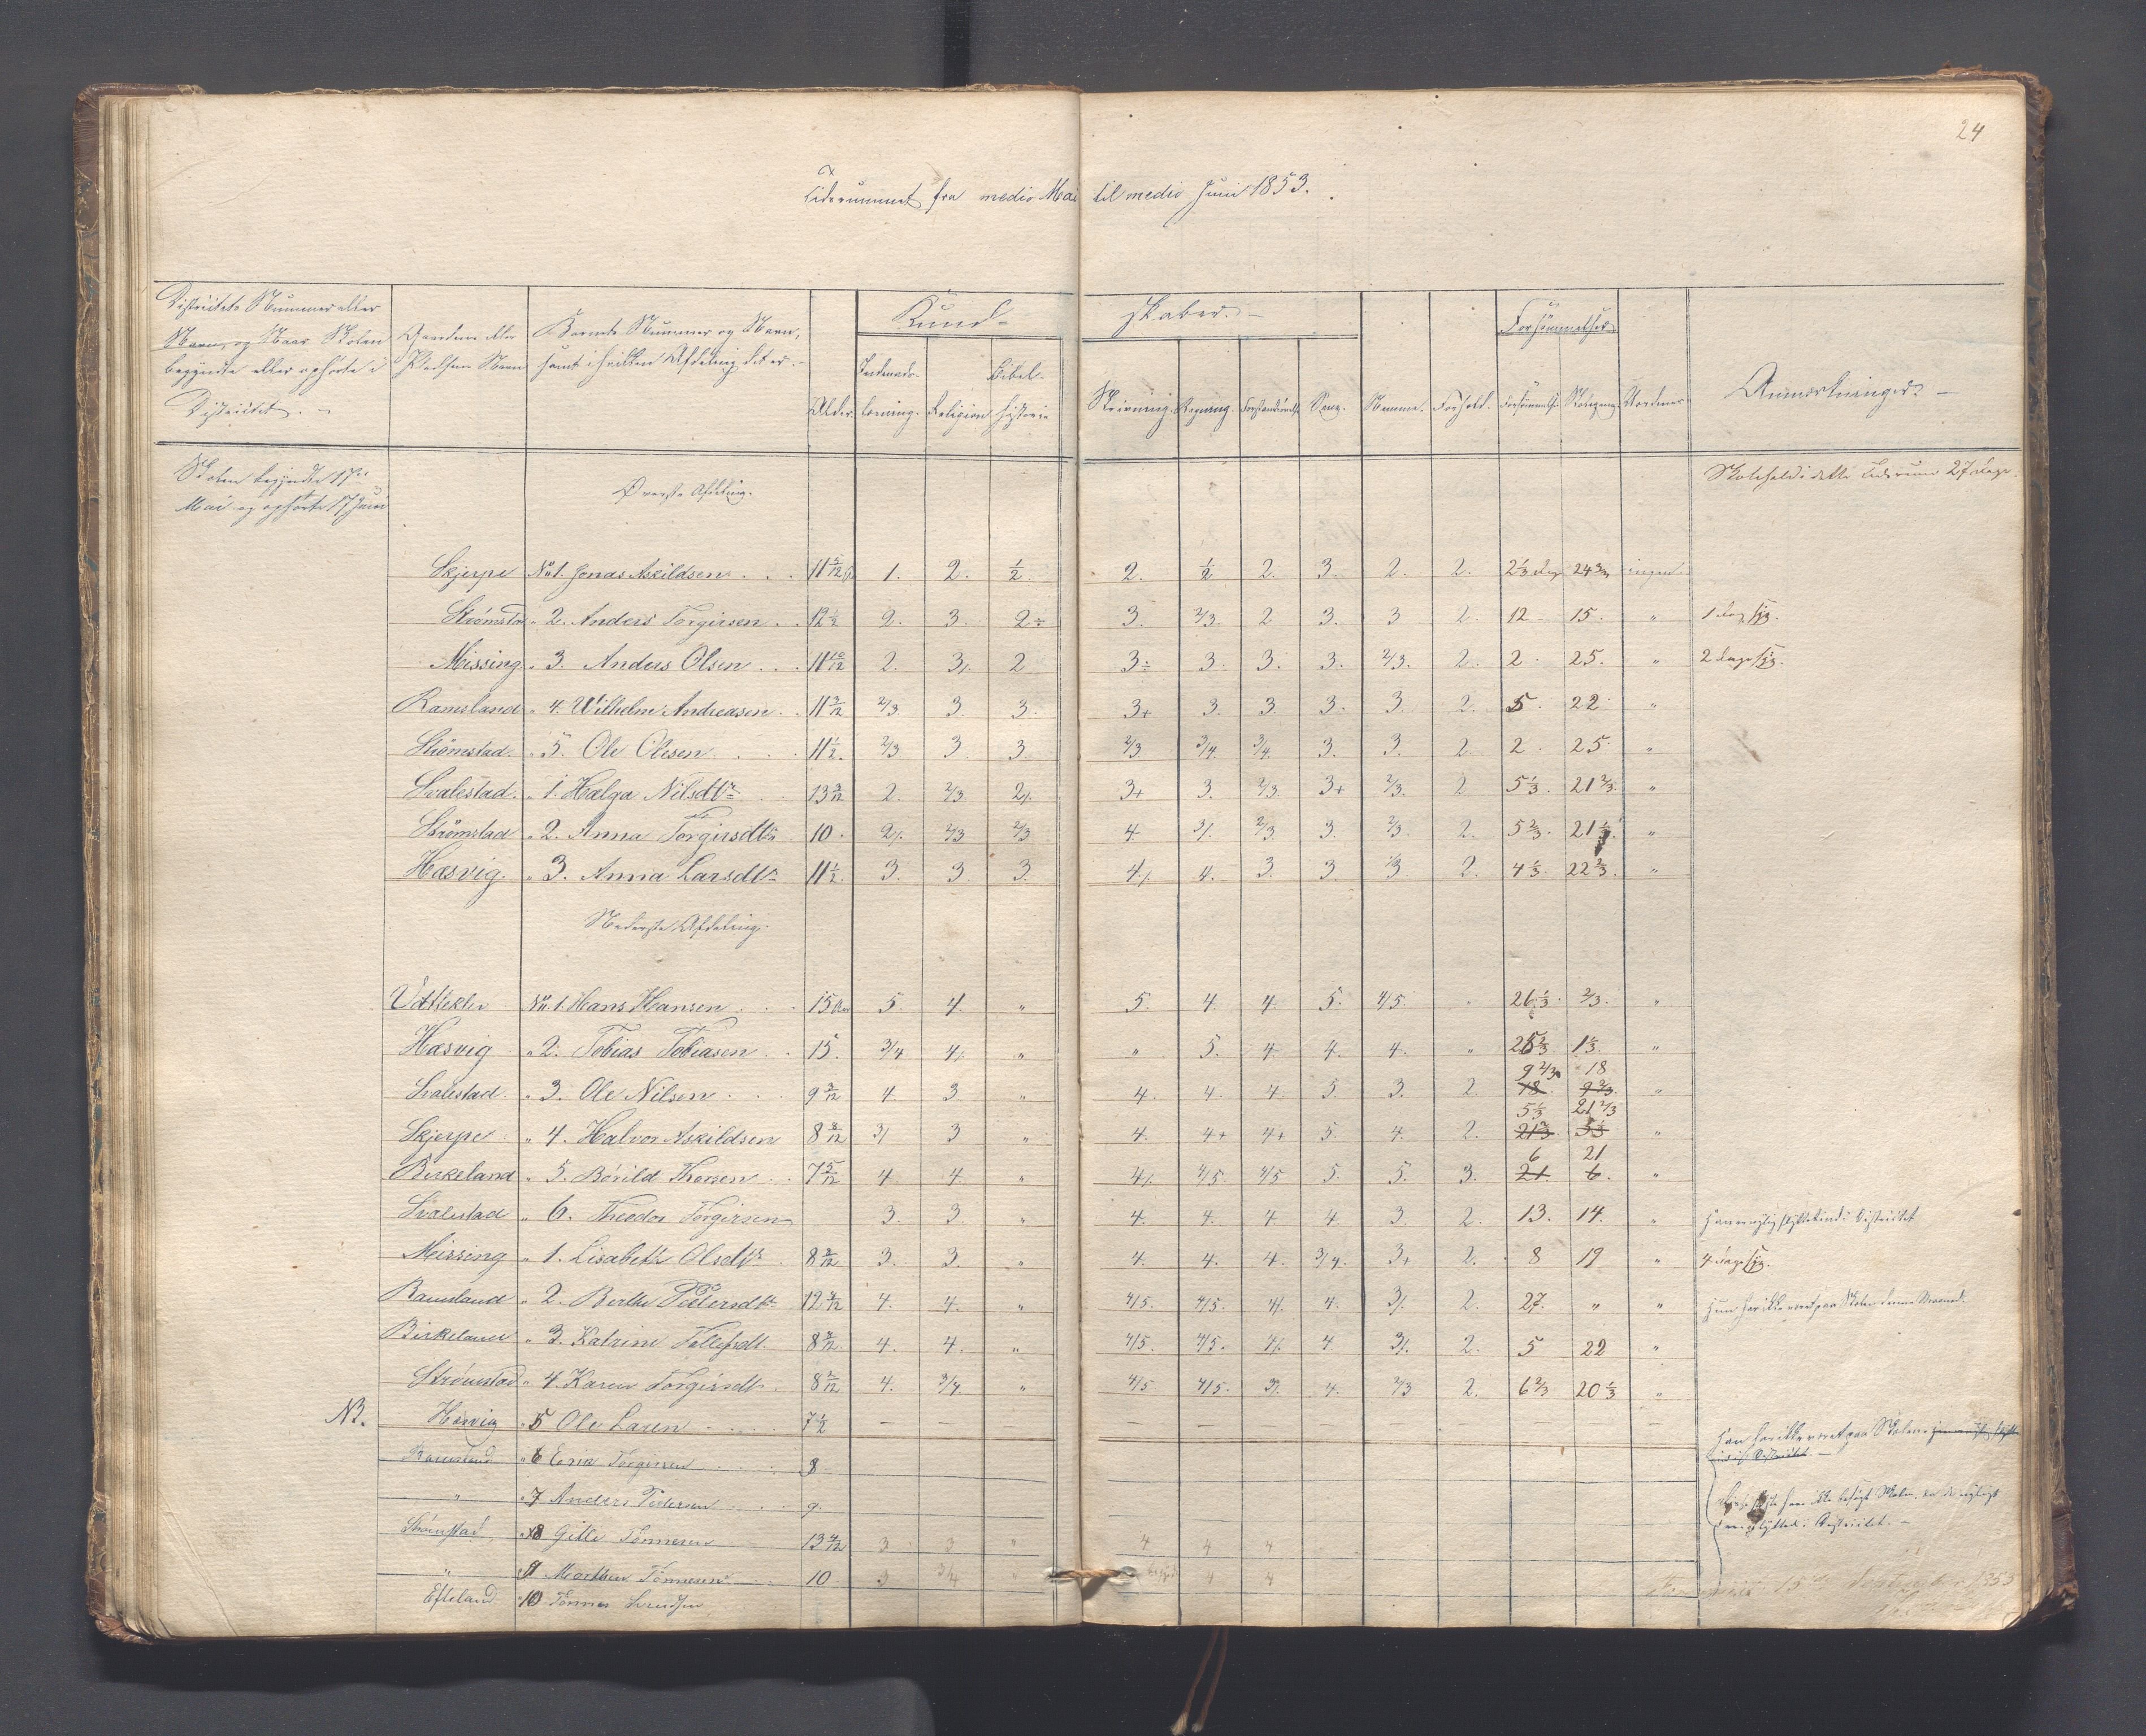 24
Tidsrummet fra medio Mai til medio Juni 1853.
Districtets Nummer eller Navn, og Naar Skolen begyndte eller ophørte i Districtet.
Gaardens eller Pladsens Navn
Barnets Nummer og Navn, samt i hvilken Afdeling det er.
Alder.
Kundskaber.
Indenads-læsning.
Religion
Bibel-historie
Skrivning.
Regning.
Sang.
Nemme.
Forhold.
Forsømmelser
Forsømmelse.
Skolegang.
Anmærkninger.
Skolen begyndte
Mai og ophørte Juni
Øverste Afdeling.
Skolehold i dette Tidsrum 27 Dage.
Skjerpe No 1. Jonas Askildsen 11 5/12 1. 2. 1/2 2. 1/2 2. 3. 2. 2. 2 1/3 Dag 24 2/3 ingen
Strømstad " 2. Anders Torgirsen 12 1/2 2. 3. 2÷ 3. 2/3. 2 3. 3 2. 12 15. " 1 Dag syg.
Missing " 3. Anders Olsen 11 10/12 2. 3/. 2 3÷ 3. 3. 3. 2/3. 2. 2. 25. " 2 Dage syg.
Ramsland " 4. Wilhelm Andreasen 11 3/12 2/3. 3. 3. 3+ 3. 3. 3. 3. 2. 5. 22. "
Strømstad " 5. Ole Olesen 11 1/2. 2/3 3 3. 2/3. 3/4. 3/4. 3. 3. 2 2. 25. "
Svalestad. " 1. Hælga Nilsdtr 13 3/12 2. 2/3. 2/. 3+ 3. 2/3. 3+ 2/3. 2 5 1/3. 21 2/3. "
Strømstad " 2. Anna Torgirsdtr 10. 2/. 2/3 2/3 4. 3/. 2/3. 3. 2/3. 2. 5 2/3. 21 1/3. "
Hæsvig. " 3. Anna Larsdtr 11 1/2. 3. 3. 3. 4/. 4. 3. 3. 3. 2. 4 1/3. 22 2/3. "
Nederste Afdeling.
No 1. Hans Hansen 15 5. 4. " 5. 4. 4. 5. 4/5. " 26 1/3. 2/3. "
Hæsvig " 2. Tobias Tobiasen 15. 3/4 4/. " " 5. 4. 4. 4. " 25 2/3. 1 1/3. "
9 2/3 18
Svalestad. " 3. Ole Nilsen 9 3/12 4. 3 " 4. 4. 4. 5. 3. 2. 18. 9 2/3. "
5 1/3 21 2/3
Skjerpe " 4. Halvor Askildsen 8 8/12 3/ 3 " 4. 4+ 4+ 5. 4. 2. 21 2/3. 5 1/3 "
6 21
Birkeland " 5. Bórild Thorsen 7 5/12 4 4. " 4/. 4/5. 4/5 5. 5. 3. 21 6. "
Svalestad " 6. Theodor Torgirsen 3. 3. " 4. 4. 4 4 3. 2. 13. 14. "
Missing " 1. Lisabeth Olsdtr 8 2/12 3. 3. " 4. 4. 4. 3/4. 3+ 2. 8 19 " 4 Dage syg.
Ramsland " 2. Berthe Pedersdtr 12 4/12 4. 4. " 4/5. 4/5. 4/. 4. 3/. 2. 27. " " Hun har ikke været paa Skolen denne Maaned.
Birkeland " 3. Katrine Tallefsdt. 8 2/12 4. 4. " 4/5. 4/5. 4/. 4 3/. 2. 5 22 "
Strømstad " 4. Karen Torgirsdt 8 2/12 4. 3/4. " 4/5 4/5. 3/. 4. 2/3 2. 6 2/3 20 1/3 "
NB. Hæsvig " 5 Ole Larsen 7 1/2 – – – – – – – – – – –
Han har ikke været paa Skolen
Districtet.
Ramsland " 6 Torgirsen 8
" " 7 Anders Pedersen 9.
Districtet.
Strømstad " 8 Gitle Tönnesen 13 4/12 3 3 " 4 4 4
" 9 Tönnesen 10 3 3/4 4 4
Efteland " 10 Tönnes
15 September 1853